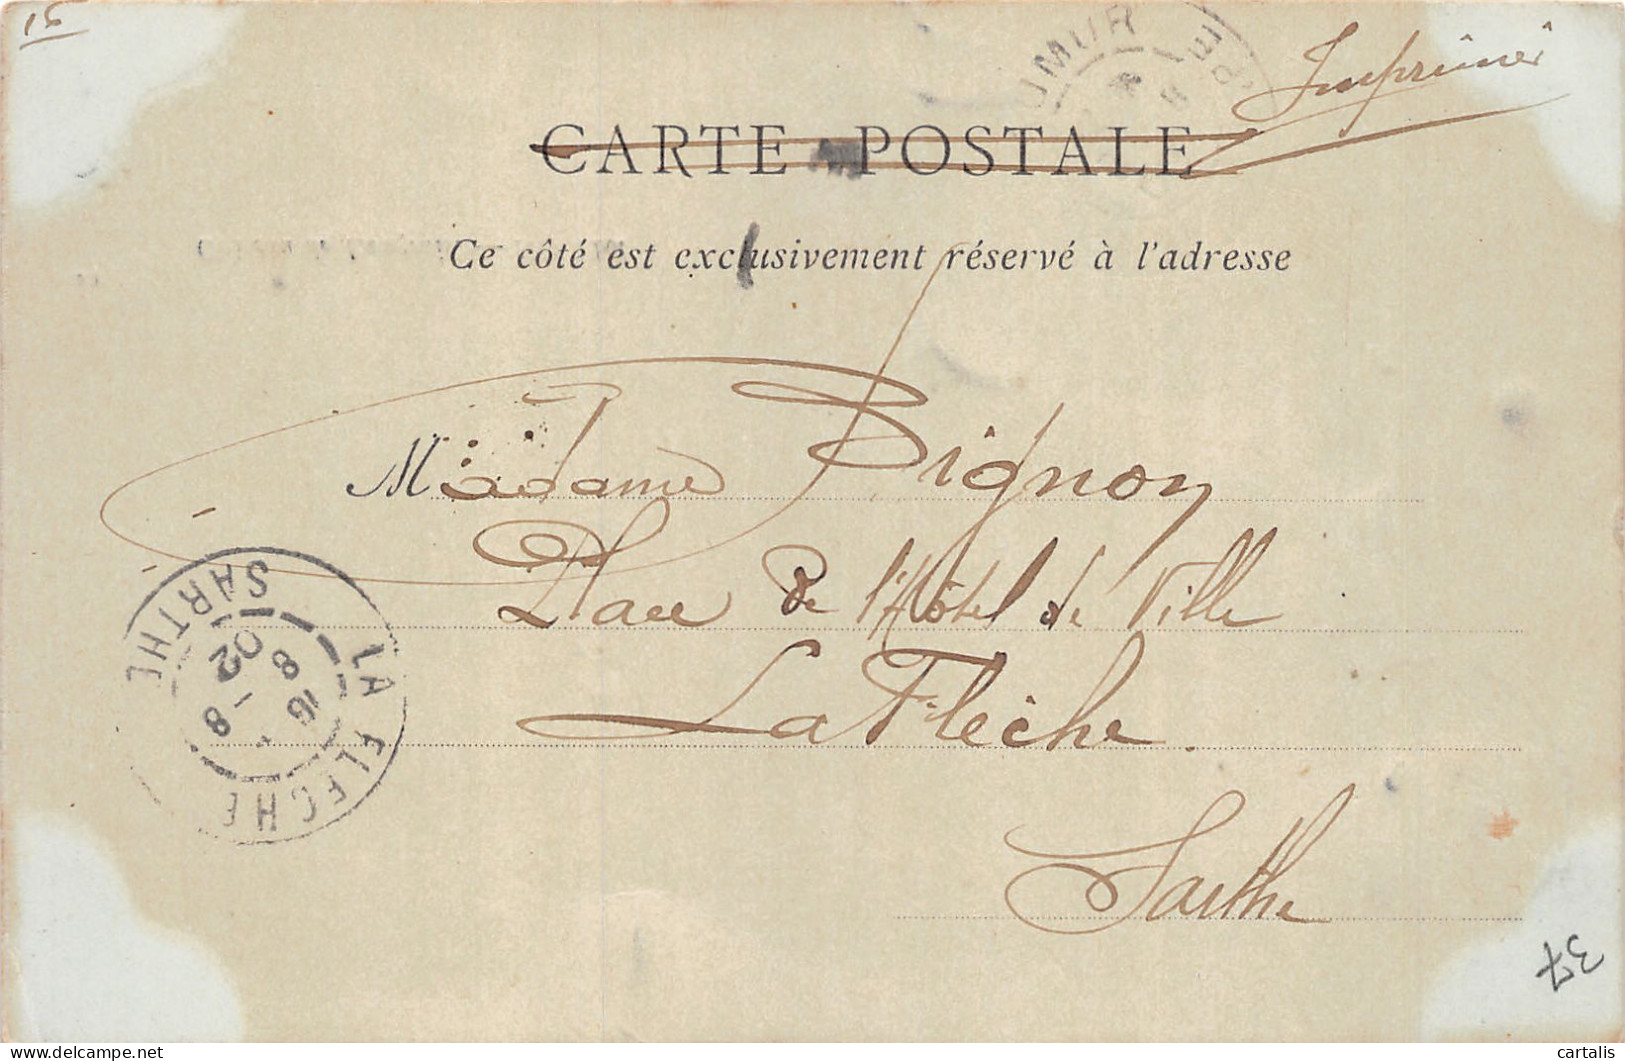 15
Imprimé
CARTE POSTALE
Ce côté est exclusivement réservé à l'adresse
Madame Bignon
Place de l'Hôtel de Ville
La Flèche
Sarthe
LA FLECHE SARTHE
8
16 - 8
02
37
cartalis
delcampe.net